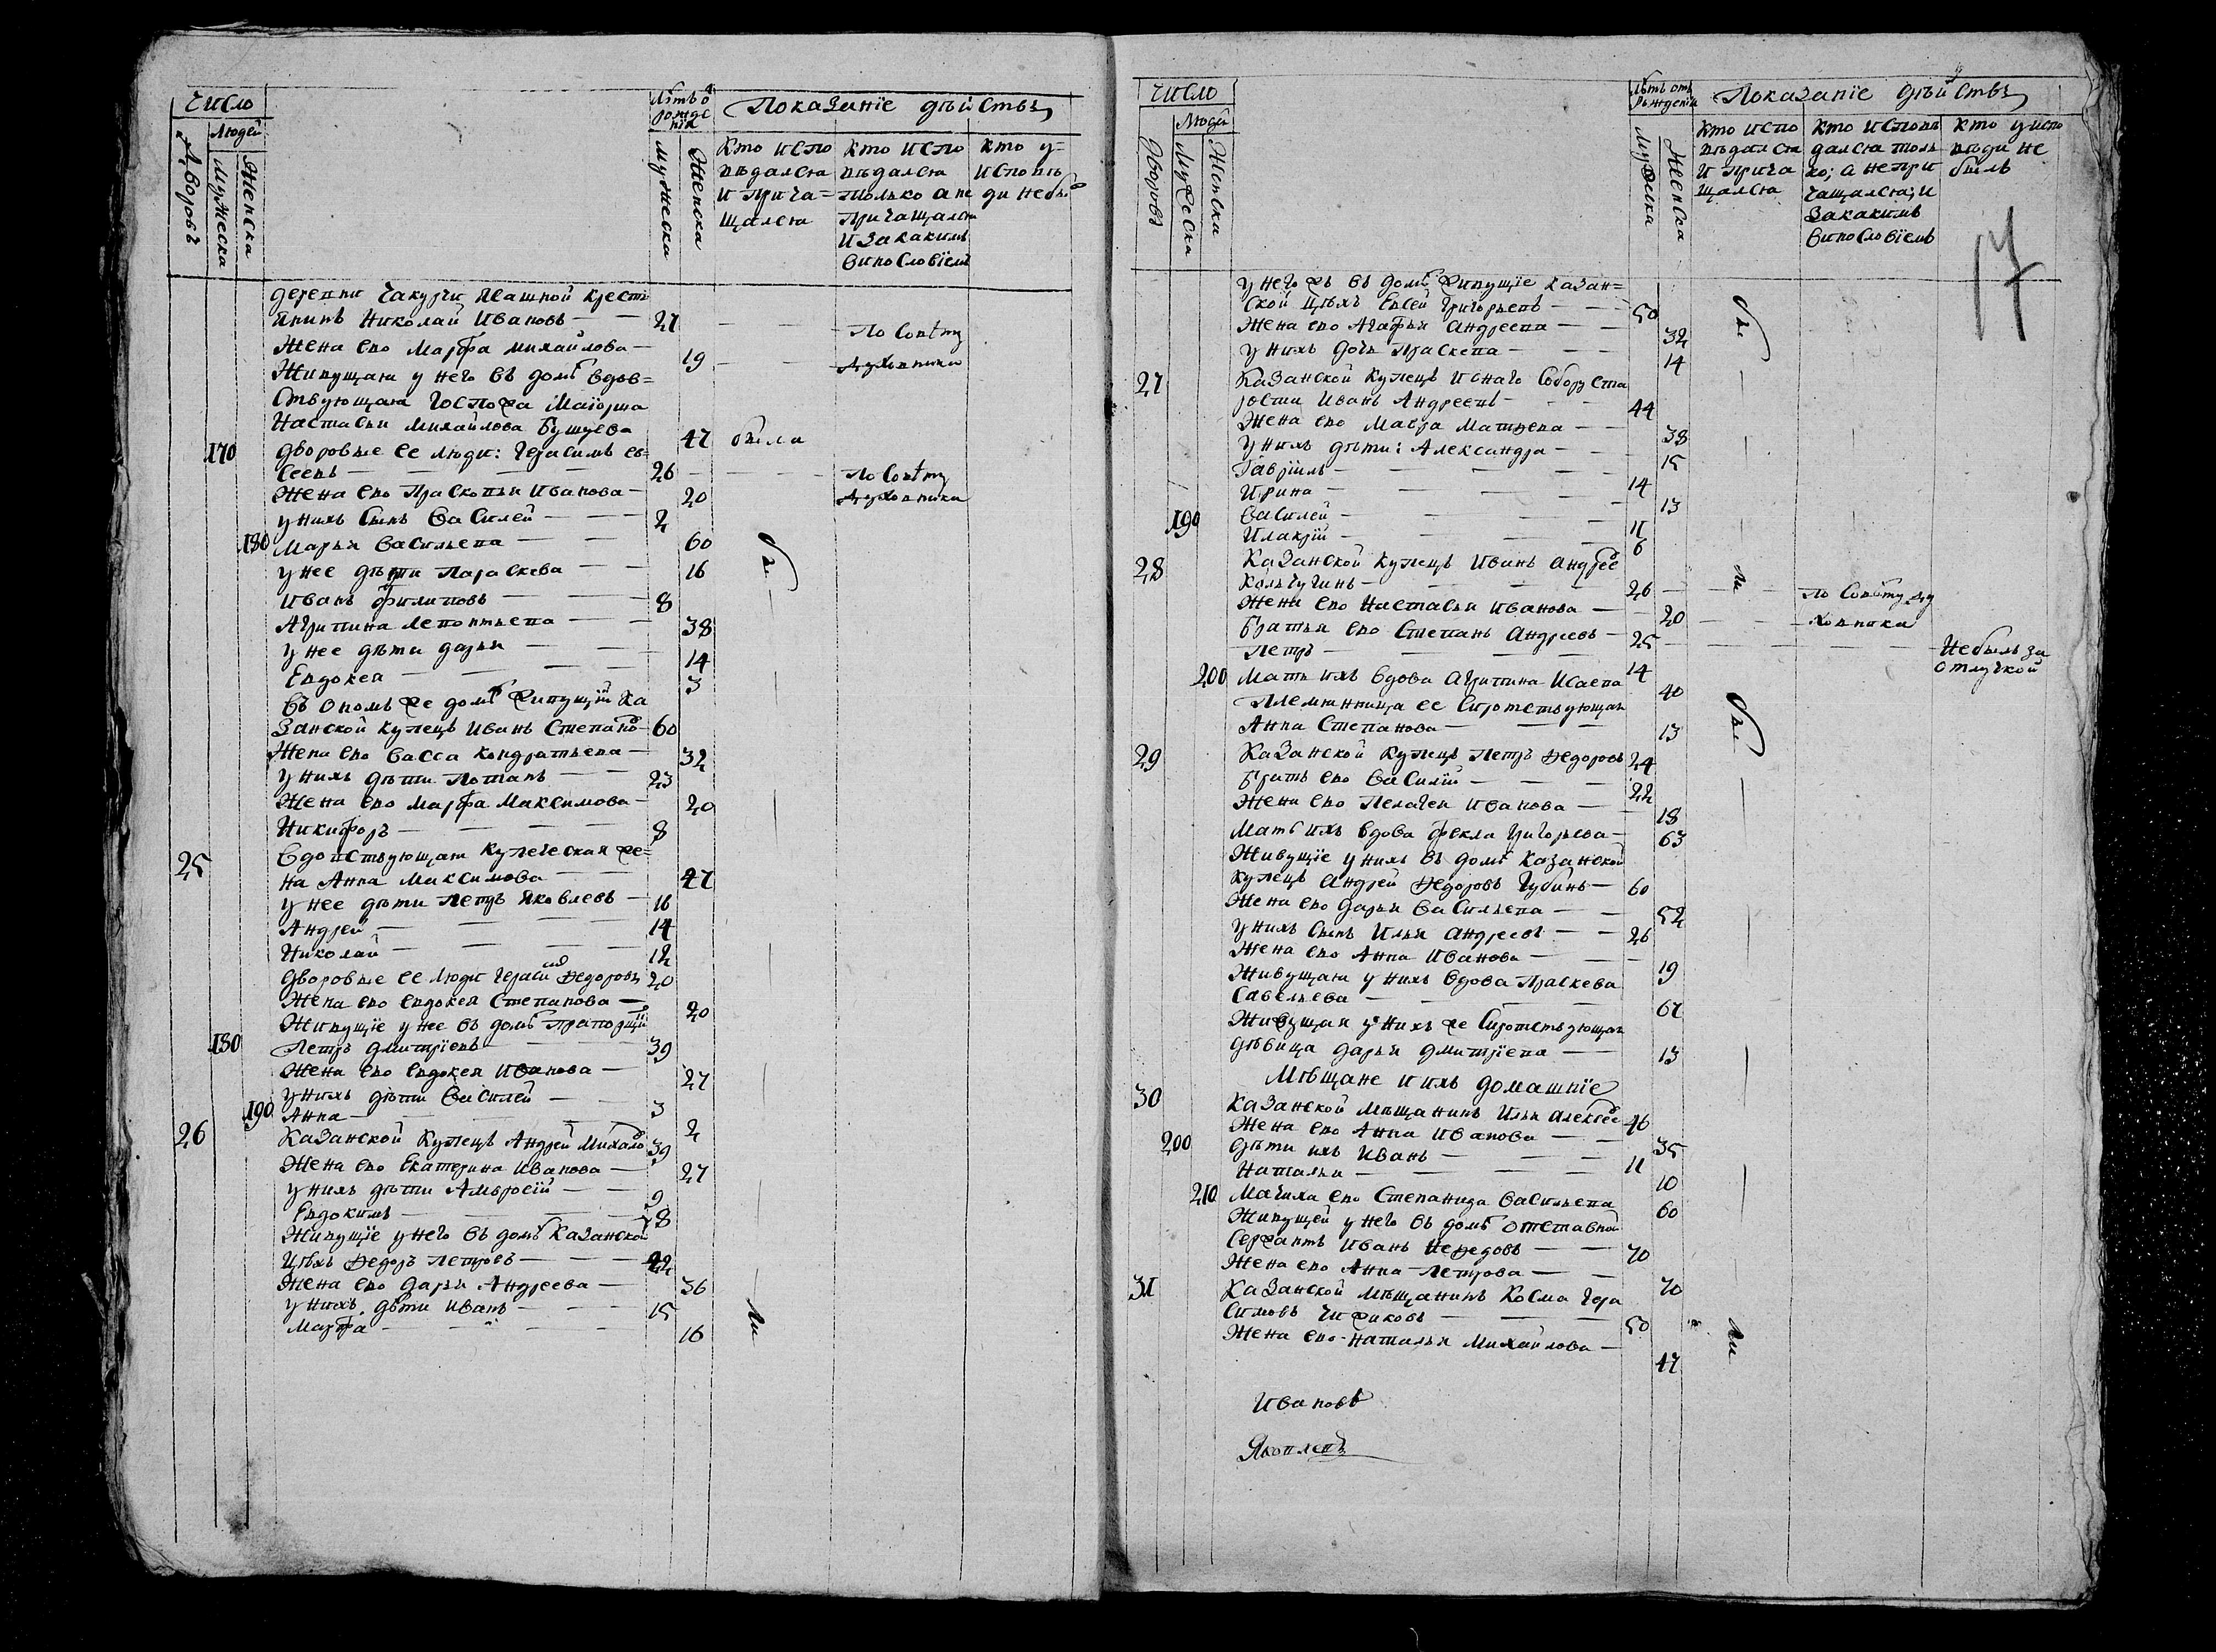 Число
Людей
Дворовъ
Мужеска
Женска
Лѣтъ о
рожде
нїя
Мужеска
Женска
Показанїе дѣйствъ
Кто испо
вѣдался
и прича=
щался
Кто испо
вѣдался
только а не
причащался
и за какимъ
винословїемъ
Кто у=
исповѣ
ди небы
деревни Чакурчи Ясашной крестї
янинъ Николай Ивановъ — 27 — — По совѣту
Жена ево Марфа Михайлова — 19 — — духовника
Живущая у него въ домѣ вдов=
ствующая госпожа Маїорша
Настасья Михайлова 47 была
170 Дворовые ее люди: Герасимъ ев=
сеевъ — 26 — — По совѣту
Жена ево Прасковья Иванова — 20 духовника
у нихъ сынъ Василей — 2
180 Марья Васильева — 60 бы
у нее дѣти Параскева — 16
Иванъ Филиповъ — 8
Агрипина Леонтьева — 38
у нее дѣти Дарья — 14
Евдокея — 3
въ ономъ же домѣ живущїй Ка
занской купецъ Иванъ Степано 60
Жена ево Васса Кондратьева — 32
у нихъ дѣти Потапъ — 23
Жена ево Марфа Максимова — 20
Никифоръ — 8
25 Вдовствующая купеческая же=
на Анна Максимова — 47
у нее дѣти Петръ Яковлевъ — 16
Андрей — 14
Николай — 12
Дворовые ее люди Федоровъ 20
Жена ево Евдокея Степанова — 20
Живущїе у нее въ домѣ прапорщи
180 Петръ Дмитрїевъ — 39
Жена ево Евдокея Иванова — 27
у нихъ дѣти Василей — 3
190 Анна — 2
26 Казанской купецъ Андрей Михайло 39
Жена ево Екатерина Иванова — 27
у нихъ дѣти Амвросїй — 9
Евдокимъ — 8
Живущїе у него въ домѣ Казанской
цѣхъ Федоръ Петровъ — 42
Жена ево Дарья Андреева — 36
у нихъ дѣти Иванъ — 15
Марфа — 16 ли
Число
Людей
Дворовъ
Мужеска
Женска
Лѣтъ отъ
рожденїя
Мужеска
Женска
Показанїе дѣйствъ
Кто испо
вѣдался
и прича
щался
Кто исповѣ
дался толь
ко; а непри
чащался; и
за какимъ
винословїемъ
Кто у испо
вѣди не
былъ
17
у него жъ въ домѣ живущїе Казан=
ской цѣхъ Евсей Григорьевъ — 50 бы
Жена ево Агафья Андреева — 32
у нихъ дочь Праскева — 14
27 Казанской купецъ и онаго собору ста
роста Иванъ Андреевъ — 44
Жена ево Мавра Матвеева — 38
у нихъ дѣти: Александра — 15
Гаврїилъ — 14
Ирина — 13
190 Василей — 11
Илакрїй — 6
28 Казанской купецъ Иванъ Андрее
Колчугинъ — 26 — ли — По совѣту ду
Жена ево Настасья Иванова — 20 — — ховника
Братья ево Степанъ Андреевъ — 25 — — — Небылъ за
Петръ — 14 отлучкой
200 Мать ихъ вдова Агрипина Исаева 40 бы
Племянница ее сиротствующая
Анна Степанова — 13
29 Казанской купецъ Петръ Федоровъ 24
Братъ ево Василїй — 22
Жена ево Пелагея Иванова — 18
Мать ихъ вдова Фекла Григорьева — 63
Живущїе у нихъ въ домѣ Казанской
купецъ Андрей Федоровъ Губинъ — 60
Жена ево Дарья Васильева — 52
у нихъ сынъ Илья Андреевъ — 26
Жена ево Анна Иванова — 19
Живущая у нихъ вдова Праскева
Савельева — 67
Живущая у нихъ же сиротствующая
дѣвица Дарья Дмитрїева — 13
Мѣщане и ихъ домашнїе
30 Казанской мѣщанинъ Илья Алексѣе 46
Жена ево Анна Иванова — 35
200 Дѣти ихъ Иванъ — 11
Наталья — 10
210 Мачиха ево Степанида Васильева 60
Живущей у него въ домѣ отставной
сержантъ Иванъ Нефедовъ — 70
Жена ево Анна Петрова — 70
31 Казанской мѣщанинъ Косма Гера
симовъ Чижиковъ — 50 ли
Жена ево Наталья Михайлова — 47
Ивановъ
Яковлевъ